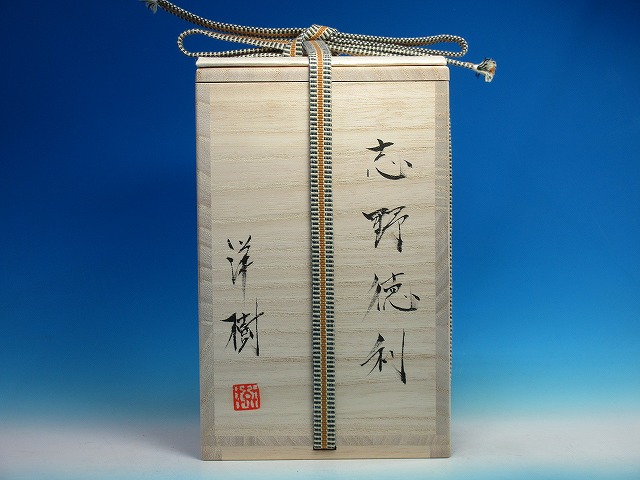 志野徳利
洋樹